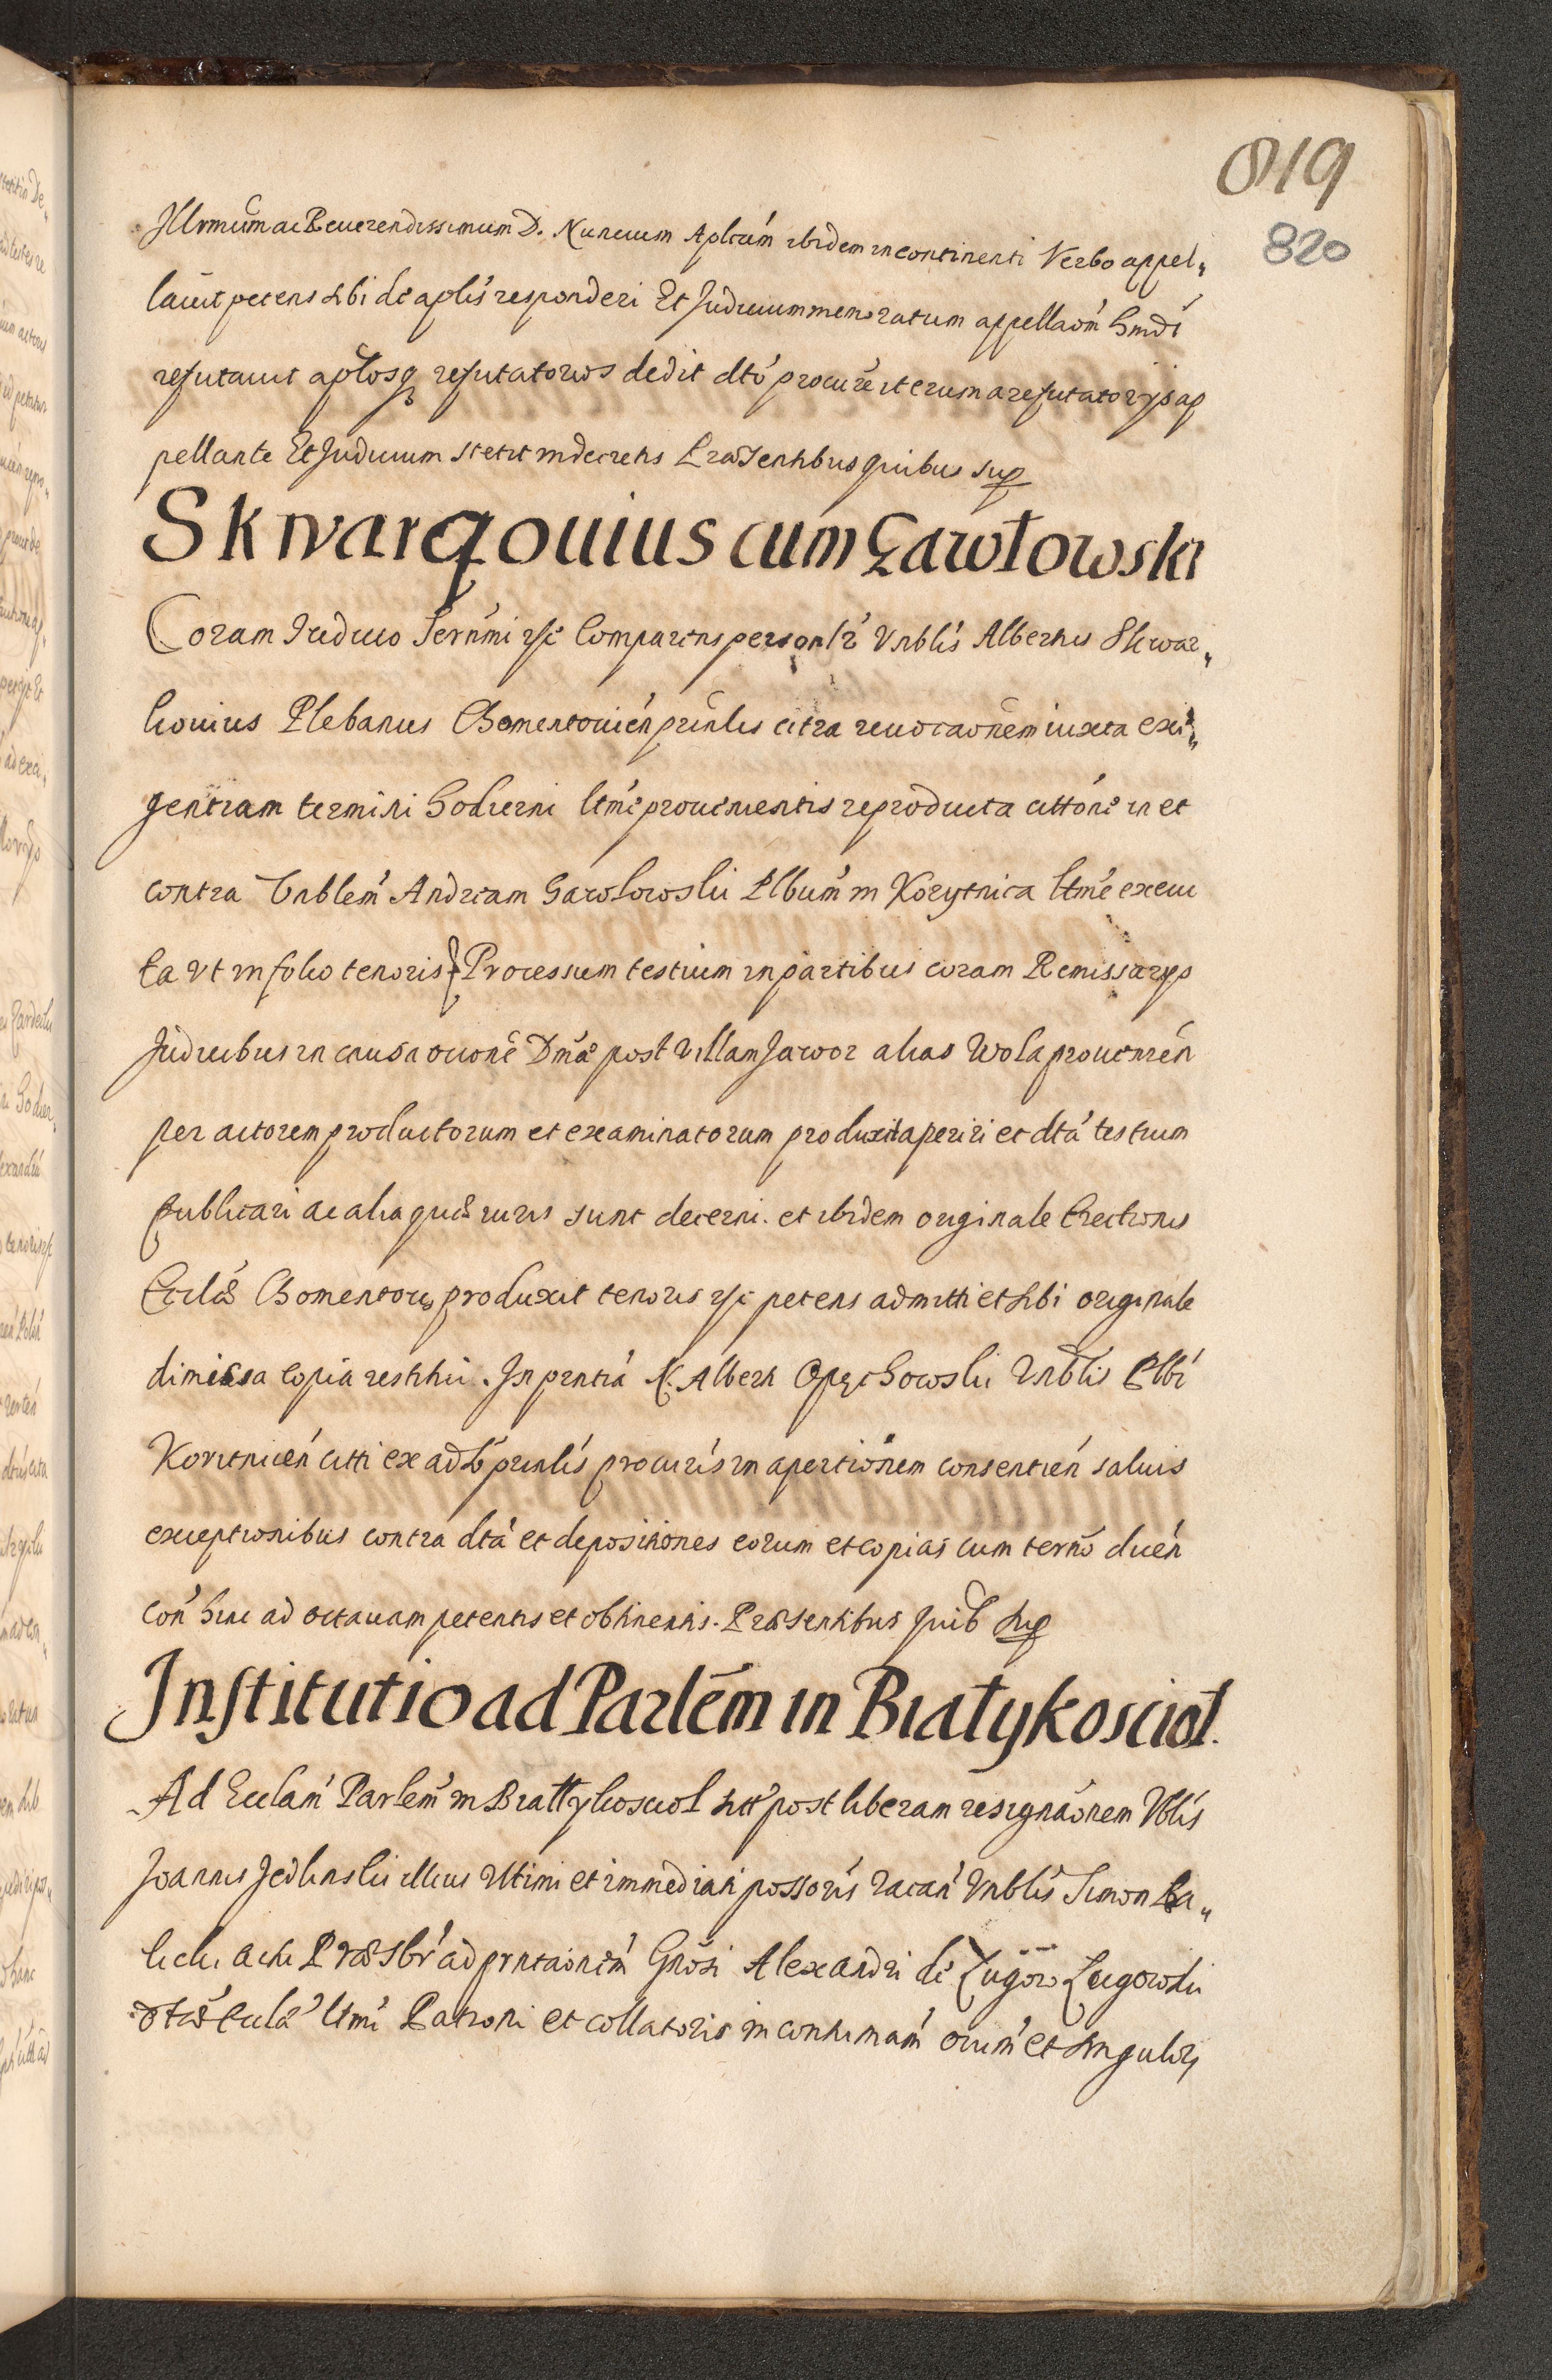 819
820
Illrmum ac Reuerendissimum D. Nuncium Aplicum ibidem incontinenti Verbo appel„
lauit petens sibi de aplis responderi Et Judicium memoratum appellaōm hmdi
refutauit aplosq refutatorios dedit dto procure iterum a refutatorijs ap
pellante Et Judicium stetit in decretis Præsentibus quibus sup
Skwarqouius cum Gawłowski
Coram Judicio Sernmi rsc Comparens personlr Vnblis Albertus Skwar„
kouius Plebanus Chomentouien prinlis citra reuocaōnem iuxta exi„
gentiam termini hodierni ltme prouenientis reproducta cittōne in et
contra Vnblem Andream Gawłowski Plbum in Korytnica ltme execu
ta vt in folio tenoris Processum testium in partibus coram Remissarijs
Judicibus in causa Dmæ post villam Jawor alias Wola prouenien
per actorem productorum et examinatorum produxit aperiri et dta testium
publicari ac alia quæ iuris sunt decerni. et ibidem originale Erectionis
Ecclæ Chomentow produxit tenoris rsc petens admitti et sibi originale
dimissa copia restitui. In prntia N. Alberti Opęchowski Vnblis Plbi
Koritnicen citti ex adto prinlis procuris in apertionem consentien saluis
exceptionibus contra dta et depositiones eorum et copias cum termo dicen
con hinc ad octauam petentis et obtinentis. Præsentibus quib sup
Institutio ad Parlem in Białykosciół.
Ad Ecclam Parlem in Białłykosciol sitt post liberam resignaōnem Vblis
Joannis Jedlinski illius vltimi et immediati possoris vacan Vnblis Simon
Præsbr ad prntaōnem Gnosi Alexandri de Ługow Ługowski
dtæ Eccla ltmi Patroni et collatoris in contumam oium et singulor